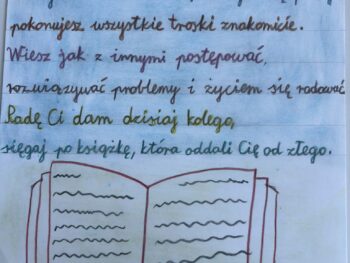 pokonujesz wszystkie troski znakomicie.
Wiesz jak z innymi postępować,
rozwiązywać problemy i życiem się radować
Radę Ci dam dzisiaj kolego,
sięgaj po książkę, która oddali Cię od złego.